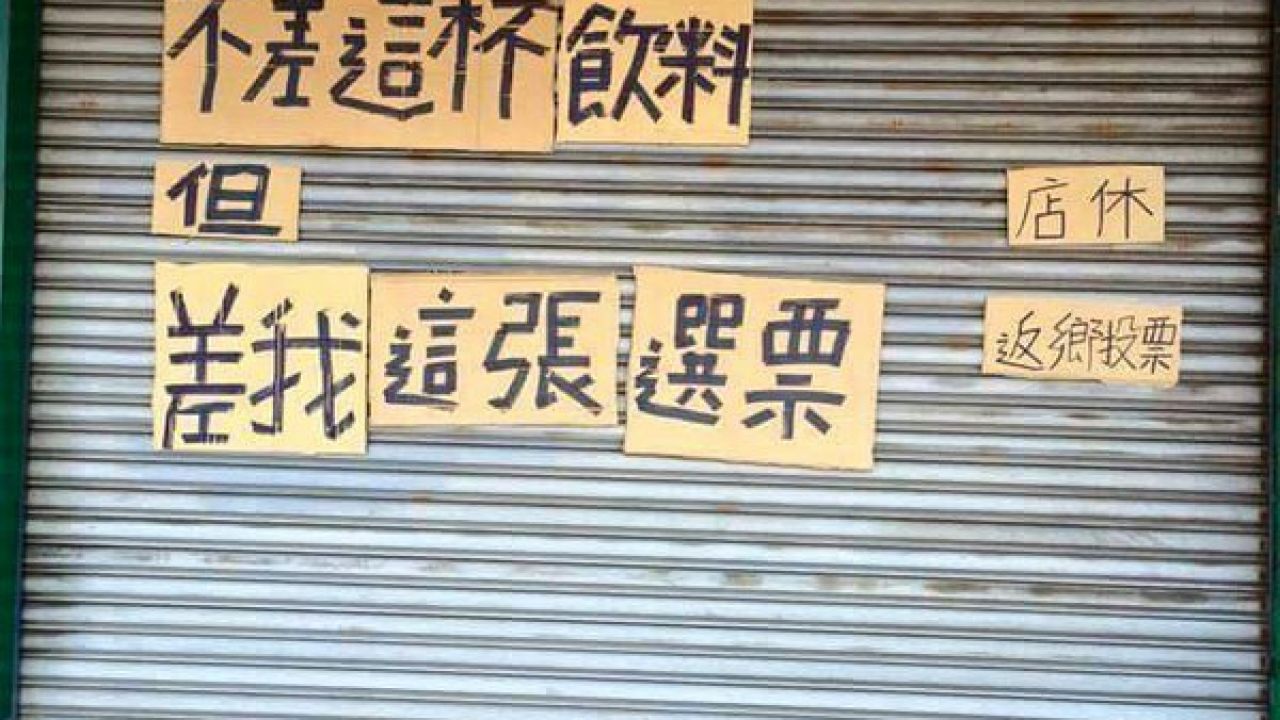 不差這杯飲料
但
差我這張選票
店休
返鄉投票